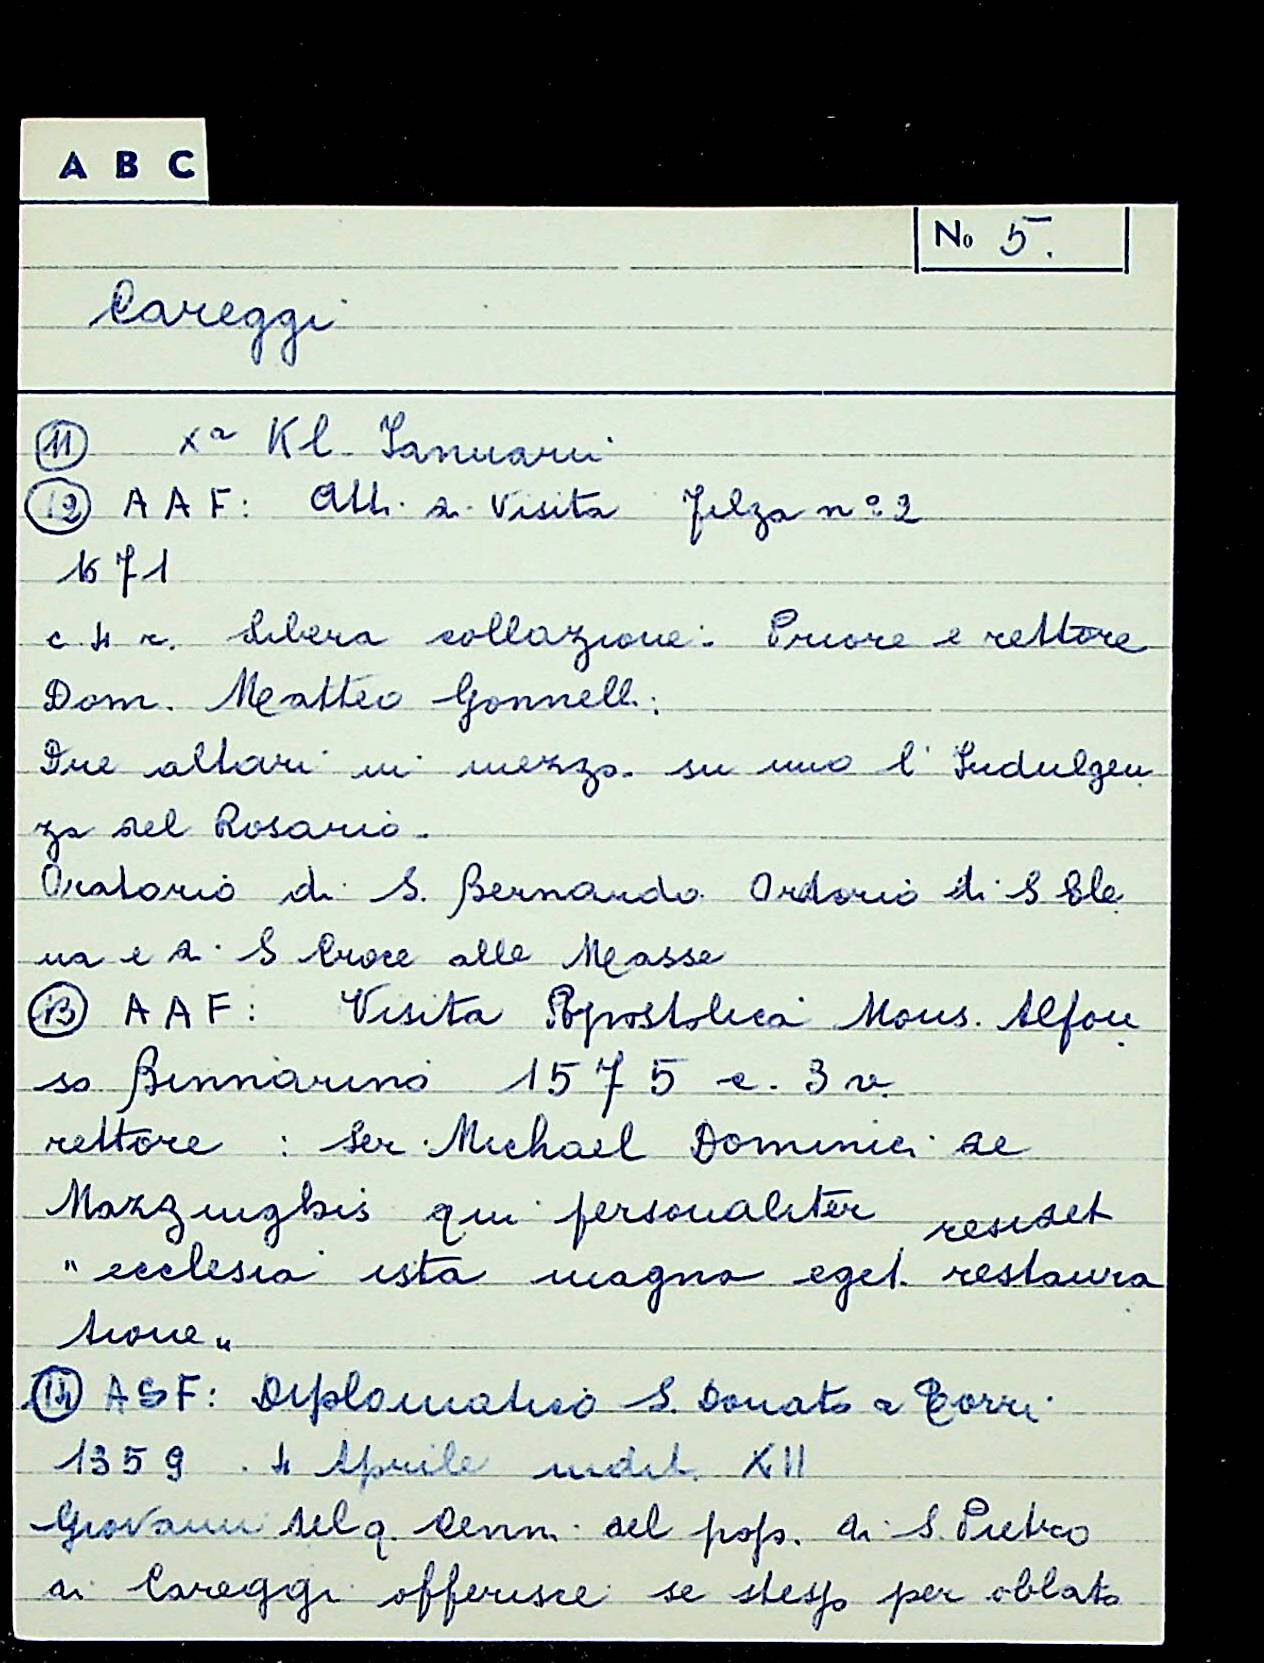 A B C
No 5.
Careggi
11 Xa Kl. Ianuarii
12 AAF: Atti di Visita Filza n° 2
1671
c 4 r. Libera collazione. Priore e rettore
Dom. Matteo Gonnelli.
Due altari in mezzo. su uno l'Indulgen
za del Rosario.
Oratorio di S. Bernardo Oratorio di S Ele
na e di S Croce alle Masse
13 AAF: Visita Apostolica Mons. Alfon
so Binnarino 1575 c. 3 v.
rettore : Ser Michael Dominici de
Mazzinghis qui personaliter residet
"ecclesia ista magna eget restaura
tione"
14 ASF: Diplomatico S. Donato a Torri
1359 . 4 Aprile indit. XII
Giovanni del q. Cenni del pop. di S. Pietro
di Careggi offerisce se stesso per oblato